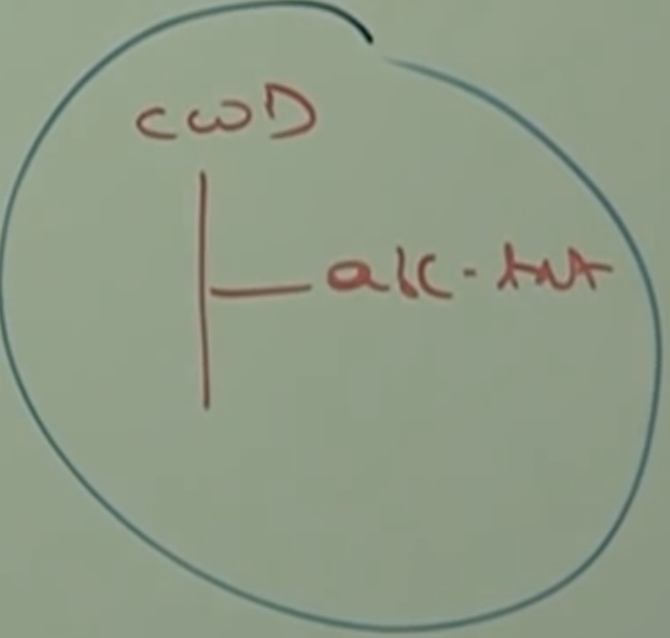 CWD
abc.txt